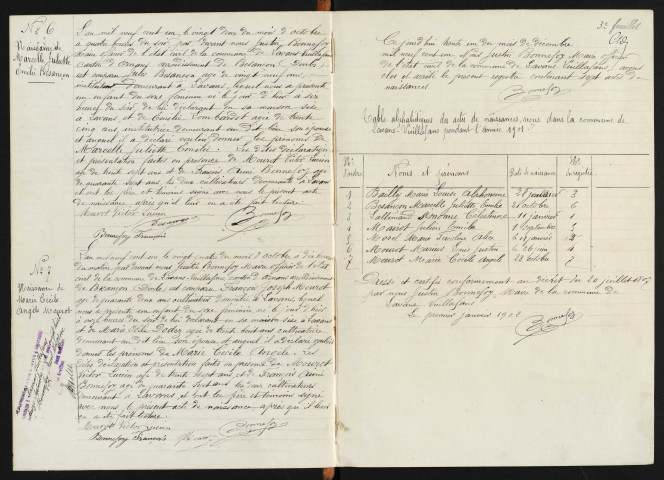 N° 6
Naissance de
Marcelle Juliette
Emilie Besançon
L'an mil neuf cent un le vingt deux du mois d'octobre
à quatre heures du soir par devant nous Justin Bonnefoy
Maire officier de l'état civil de la commune de Lavans Vuillafans
canton d'Ornans arrondissement de Besançon Doubs
est comparu Jules Besançon âgé de vingt neuf ans,
instituteur demeurant à Lavans, lequel nous a présenté
un enfant du sexe féminin né le jour d'hier à
heures du soir, de lui déclarant en sa maison sise
à Lavans et de Emilie Lombardot âgée de trente
cinq ans, institutrice demeurant au dit lieu son épouse
et auquel il a déclaré vouloir donner les prénoms de
Marcelle Juliette Emilie. Les dites déclaration
et présentation faites en présence de Mourot Victor Lucien
âgé de trente sept ans et de François Aimé Bonnefoy âgé
de quarante sept ans les deux cultivateurs demeurant à Lavans
et ont les père et témoins signé avec nous le présent acte
de naissance après qu'il leur en a été fait lecture
Mourot Victor Lucien
Besançon
Bonnefoy
Bonnefoy François
N° 7
Naissance de
Marie Cécile
Angèle Mourot
L'an mil neuf cent un le vingt quatre du mois d'octobre à dix heures
du matin, par devant nous Justin Bonnefoy Maire officier de l'état
civil de la commune de Lavans Vuillafans canton d'Ornans arrondissement
de Besançon (Doubs) est comparu François Joseph Mourot
âgé de quarante deux ans cultivateur demeurant à Lavans lequel
nous a présenté un enfant du sexe féminin né le jour d'hier
à onze heures du soir de lui déclarant en sa maison sise à Lavans
et de Marie âgée de trente huit ans cultivatrice
demeurant au dit lieu son épouse et auquel il a déclaré vouloir
donner les prénoms de Marie Cécile Angèle. Les
dites déclaration et présentation faites en présence de Mourot
Victor Lucien âgé de trente sept ans et de François Aimé
Bonnefoy âgé de quarante sept ans les deux cultivateurs
demeurant à Lavans, et ont les père et témoins signé
avec nous le présent acte de naissance après qu'il leur
en a été fait lecture
Mourot Victor Lucien
Bonnefoy
Bonnefoy François
3e feuillet
Ce jourd'hui trente un du mois de décembre
mil neuf cent un Nous Justin Bonnefoy Maire officier
de l'état civil de la commune de Lavans Vuillafans, avons
clos et arrêté le présent registre contenant sept actes de
naissances
Bonnefoy
Table alphabétique des actes de naissances, reçus dans la commune de
Lavans Vuillafans pendant l'année 1901
Nos d'ordre Noms et prénoms Date de naissance Nos du registre
1 Bailly Marie Louise Alphonsine 28 juillet 3
2 Besançon Marcelle Juliette Emilie 21 octobre 6
3 Lallemand Célestine 11 janvier 1
4 Mourot Julien Emile 1 septembre 5
5 Morel Marie
6 Mourot Louis Justin 26 juin
7 Mourot Marie Cécile Angèle 23 octobre 7
Dressé et certifié conformément au décret du 20 juillet 1807
par nous Justin Bonnefoy, Maire de la commune de
Lavans Vuillafans
Le premier janvier 1902
Bonnefoy